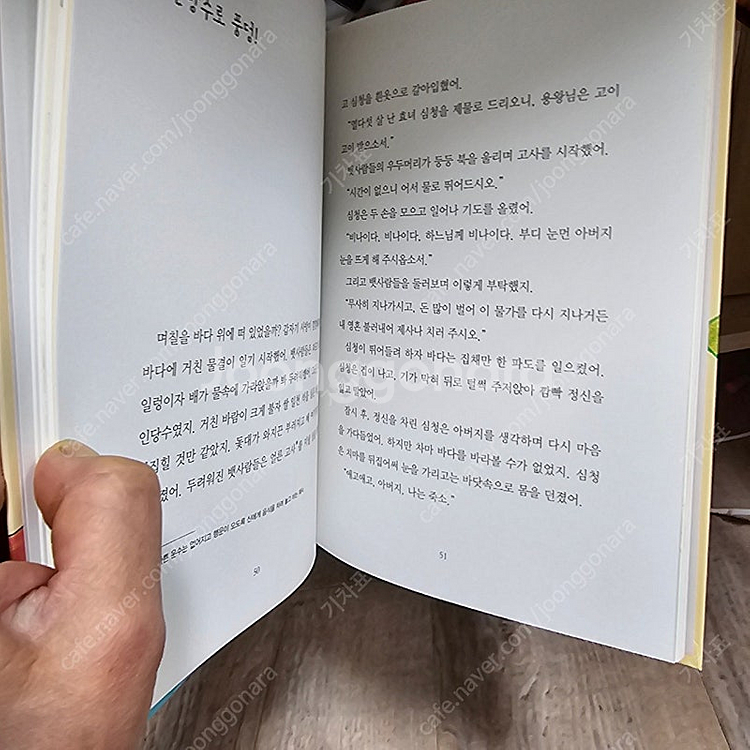 당수로 풍덩!
며칠을 바다 위에 떠 있었을까? 갑자기
바다에 거친 물결이 일기 시작했어. 뱃사람들은
일렁이자 배가 물속에 가라앉을까 봐
인당수였지. 거친 바람이 크게 불자 쌀 일천 석을
집힐 것만 같았지. 돛대가 와지끈 부러지고
졌어. 두려워진 뱃사람들은 얼른 고사를
운수는 없어지고 행운이 오도록 신에게 음식을 차려 놓고 비는 제사
50
고 심청을 흰옷으로 갈아입혔어.
"열다섯 살 난 효녀 심청을 제물로 드리오니, 용왕님은 고이
고이 받으소서."
뱃사람들의 우두머리가 둥둥 북을 울리며 고사를 시작했어.
"시간이 없으니 어서 물로 뛰어드시오."
심청은 두 손을 모으고 일어나 기도를 올렸어.
"비나이다. 비나이다. 하느님께 비나이다. 부디 눈먼 아버지
눈을 뜨게 해 주시옵소서."
그리고 뱃사람들을 둘러보며 이렇게 부탁했지.
"무사히 지나가시고, 돈 많이 벌어 이 물가를 다시 지나거든
내 영혼 불러내어 제사나 치러 주시오."
심청이 뛰어들려 하자 바다는 집채만 한 파도를 일으켰어.
심청은 겁이 나고, 기가 막혀 뒤로 털썩 주저앉아 깜빡 정신을
잃고 말았어.
잠시 후, 정신을 차린 심청은 아버지를 생각하며 다시 마음
을 가다듬었어. 하지만 차마 바다를 바라볼 수가 없었지. 심청
은 치마를 뒤집어써 눈을 가리고는 바닷속으로 몸을 던졌어.
"애고애고, 아버지, 나는 죽소."
51
joonggonara
cafe.naver.com/joonggonara
기차표